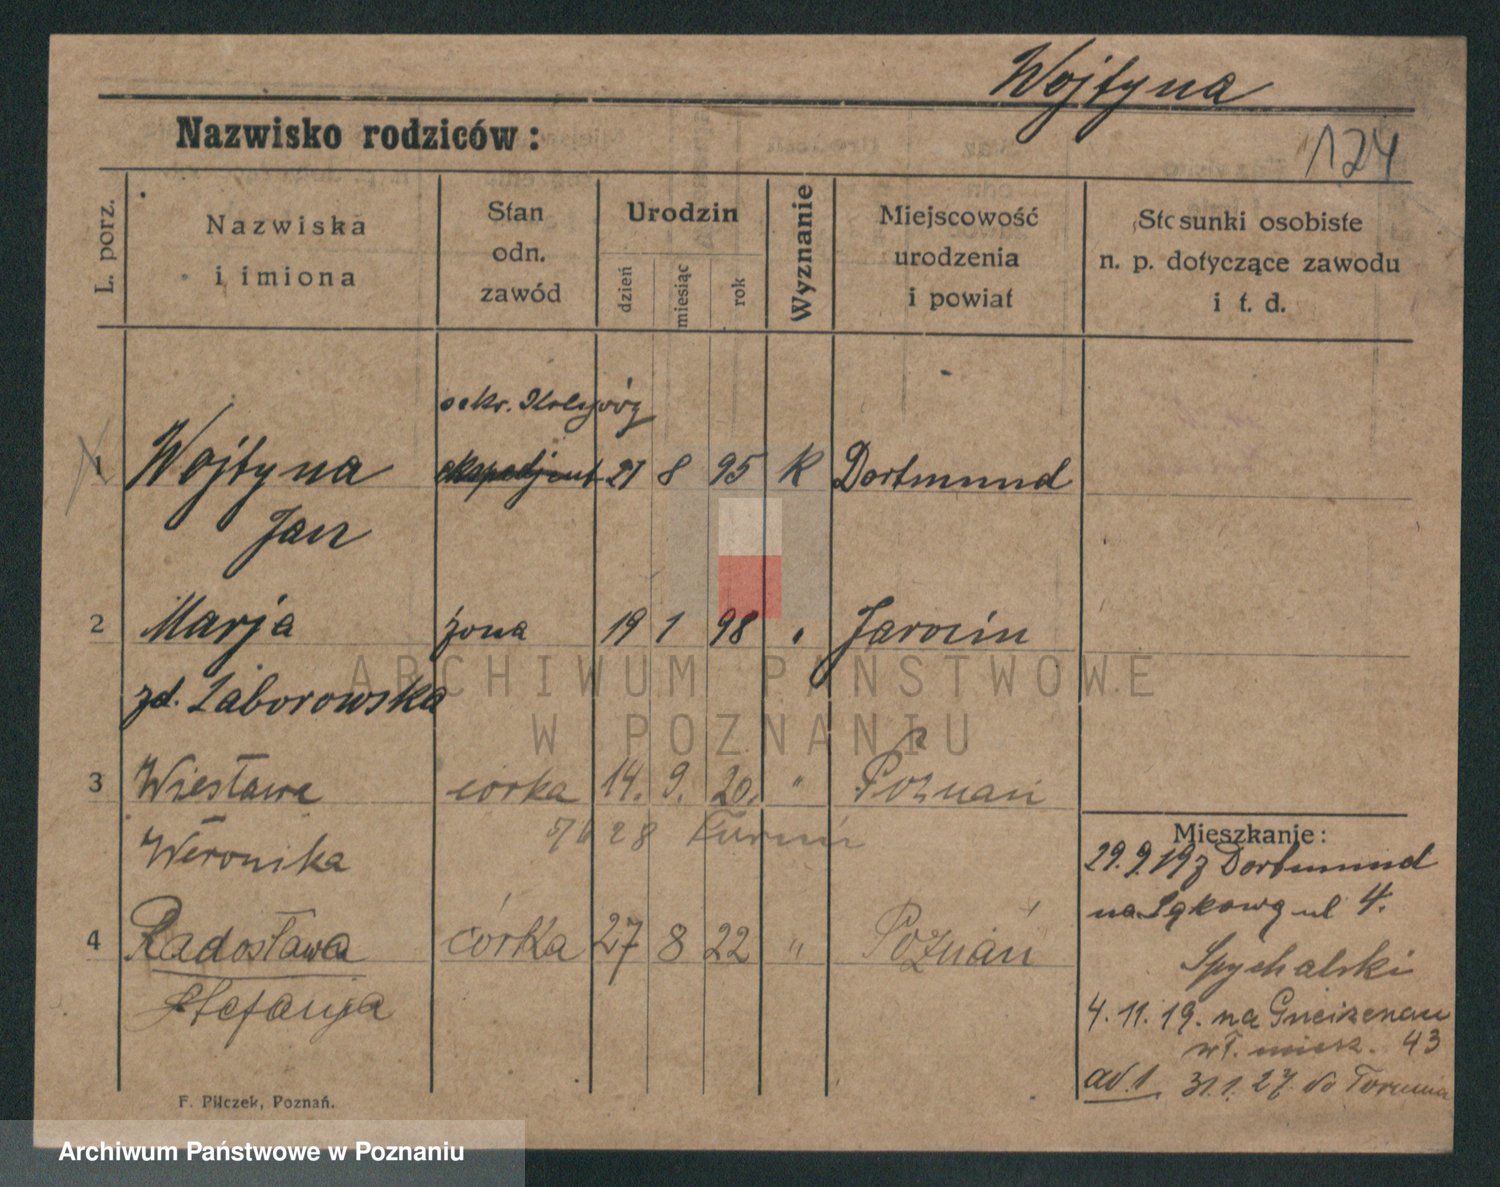 Wojtyna
Nazwisko rodziców:
124
L. porz.
Nazwiska
i imiona
Stan
odn.
zawód
Urodzin
dzień
miesiąc
rok
Wyznanie
Miejscowość
urodzenia
i powiat
Stosunki osobiste
n. p. dotyczące zawodu
i t. d.
sekr.
1 Wojtyna ekspedjent 21 8 95 K Dortmund
Jan
2 Marja żona 19 1 98 " Jarocin
zd. Laborowska
ARCHIWUM PAŃSTWOWE
W POZNANIU
3 Wiesława córka 14. 9. 20. " Poznań
5/6 28
Weronika
4 Radosława córka 27 8 22 " Poznań
Stefanja
Mieszkanie:
29.9.19 z Dortmund
na Łąkową ul 4.
Spychalski
4.11.19. na Gneizenau
wł. miesz. 43
ad. 1 31.1.27. do Torunia
F. Pilczek, Poznań.
Archiwum Państwowe w Poznaniu